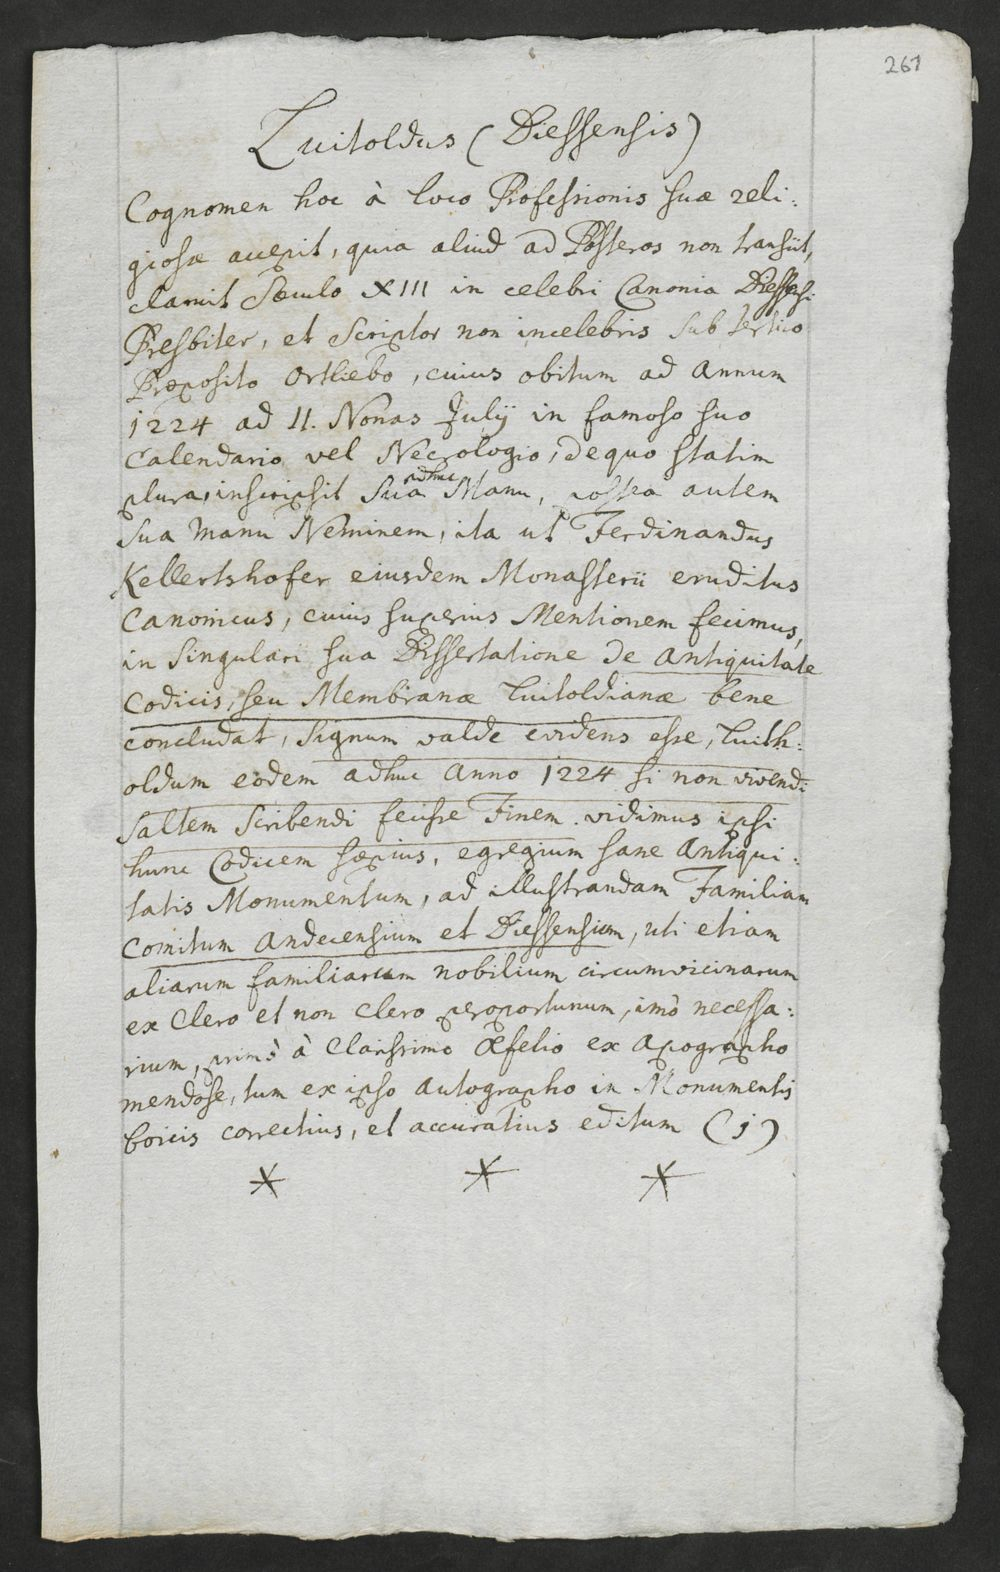 267
Luitoldus (Diessensis)
Cognomen hoc à loco Professionis suæ reli:
giosæ accepit, quia aliud ad Posteros non transiit,
claruit Sæculo XIII in celebri Canonia Diessensi
Presbiter, et Scriptor non incelebris sub tertio
Præposito Ortliebo, cuius obitum ad Annum
1224 ad II. Nonas Julÿ in famoso suo
Calendario vel Necrologio, de quo statim
plura, inscripsit sua adhuc Manu, postea autem
sua Manu Neminem, ita ut Ferdinandus
Kellertshofer eiusdem Monasterii eruditus
Canonicus, cuius superius Mentionem fecimus,
in singulari sua Dissertatione de Antiquitate
Codicis, seu Membranæ Luitoldianæ bene
concludat, signum valde evidens esse, Luith:
oldum eodem adhuc Anno 1224 si non vivendi
saltem scribendi fecisse Finem. vidimus ipsi
hunc Codicem sæpius, egregium sane Antiqui:
tatis Monumentum, ad illustrandam Familiam
Comitum Andecensium et Diessensium, uti etiam
aliarum familiarum nobilium circumvicinarum
ex Clero et non Clero peroportunum, imò necessa:
rium, primò à Clarissimo Œfelio ex Apographo
mendose, tum ex ipso Autographo in Monumentis
boicis correctius, et accuratius editum (1)
* * *